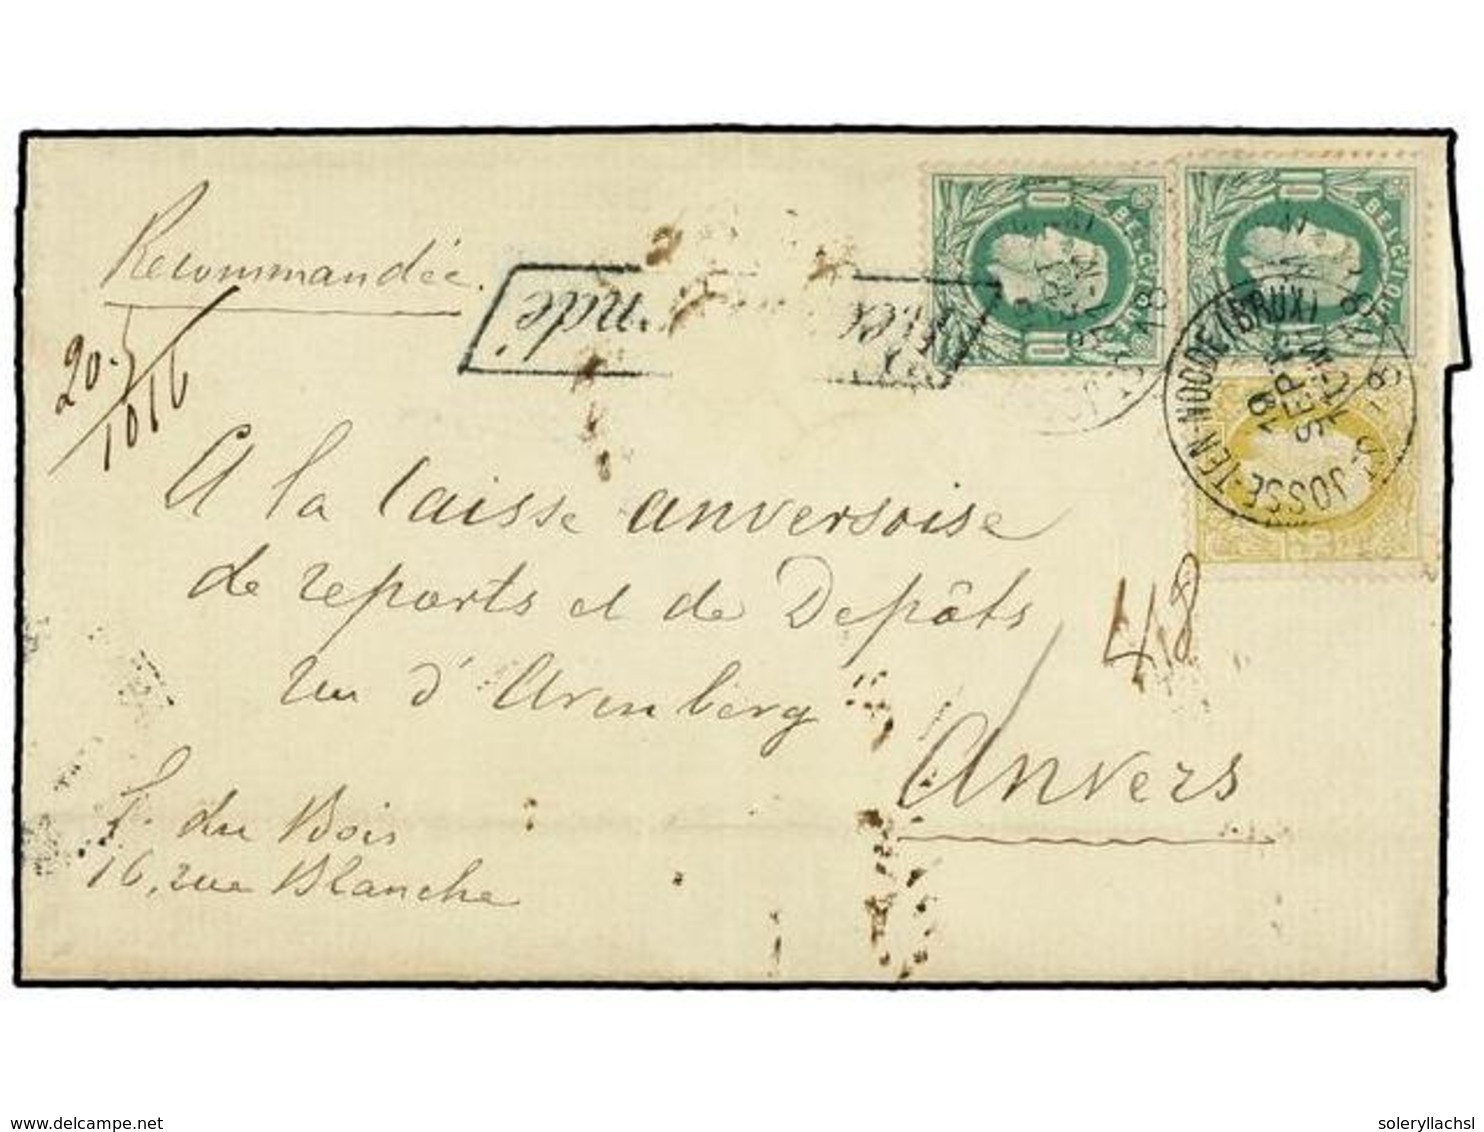 Recommandée.
20.
1016
A la Caisse anversoise
de reports et de Dépôts
rue d'Arenberg
48
Anvers
F. du Bois
16, rue Blanche
BELGIQUE
BELGIQUE
ST-JOSSE-TEN-NOODE (BRUX)
19 SEPT
www.delcampe.net
soleryllachsl